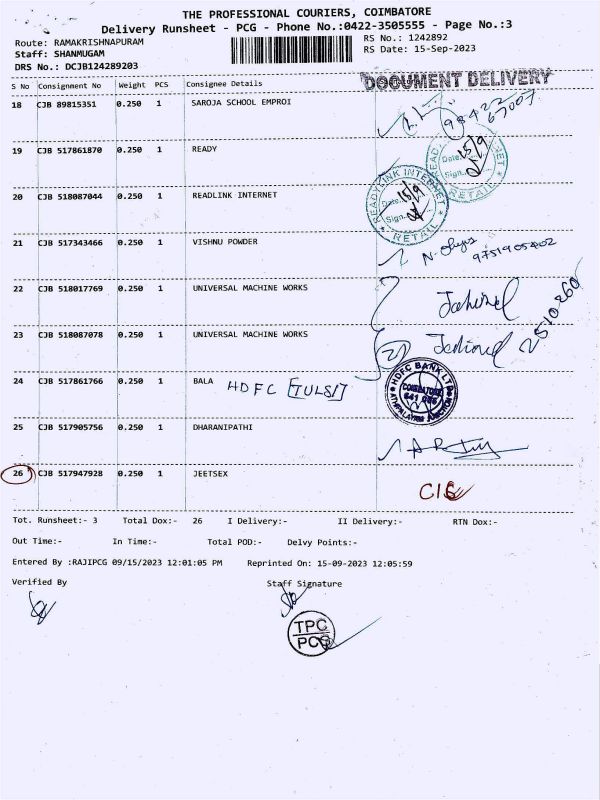 THE PROFESSIONAL COURIERS, COIMBATORE
Delivery Runsheet - PCG - Phone No.:0422-3505555 - Page No.:3
Route: RAMAKRISHNAPURAM
Staff: SHANMUGAM
DRS No.: DCJB124289203
RS No.: 1242892
RS Date: 15-Sep-2023
S No Consignment No Weight PCS Consignee Details
DOCUMENT DELIVERY
18 CJB 89815351 0.250 1 SAROJA SCHOOL EMPROI
98422
67007
19 CJB 517861870 0.250 1 READY
READYLINK INTERNET
Date 15/9
Sign.
RETAIL
20 CJB 518087044 0.250 1 READLINK INTERNET
READYLINK INTERNET
Date. 15/9
Sign.
RETAIL
21 CJB 517343466 0.250 1 VISHNU POWDER
9751905402
22 CJB 518017769 0.250 1 UNIVERSAL MACHINE WORKS
23 CJB 518087078 0.250 1 UNIVERSAL MACHINE WORKS
2
2510260
24 CJB 517861766 0.250 1 BALA HDFC [TULSI]
HDFC BANK LTD
COIMBATORE
25 CJB 517905756 0.250 1 DHARANIPATHI
26 CJB 517947928 0.250 1 JEETSEX
Tot. Runsheet:- 3 Total Dox:- 26 I Delivery:- II Delivery:- RTN Dox:-
Out Time:- In Time:- Total POD:- Delvy Points:-
Entered By :RAJIPCG 09/15/2023 12:01:05 PM Reprinted On: 15-09-2023 12:05:59
Verified By Staff Signature
TPC
PCG